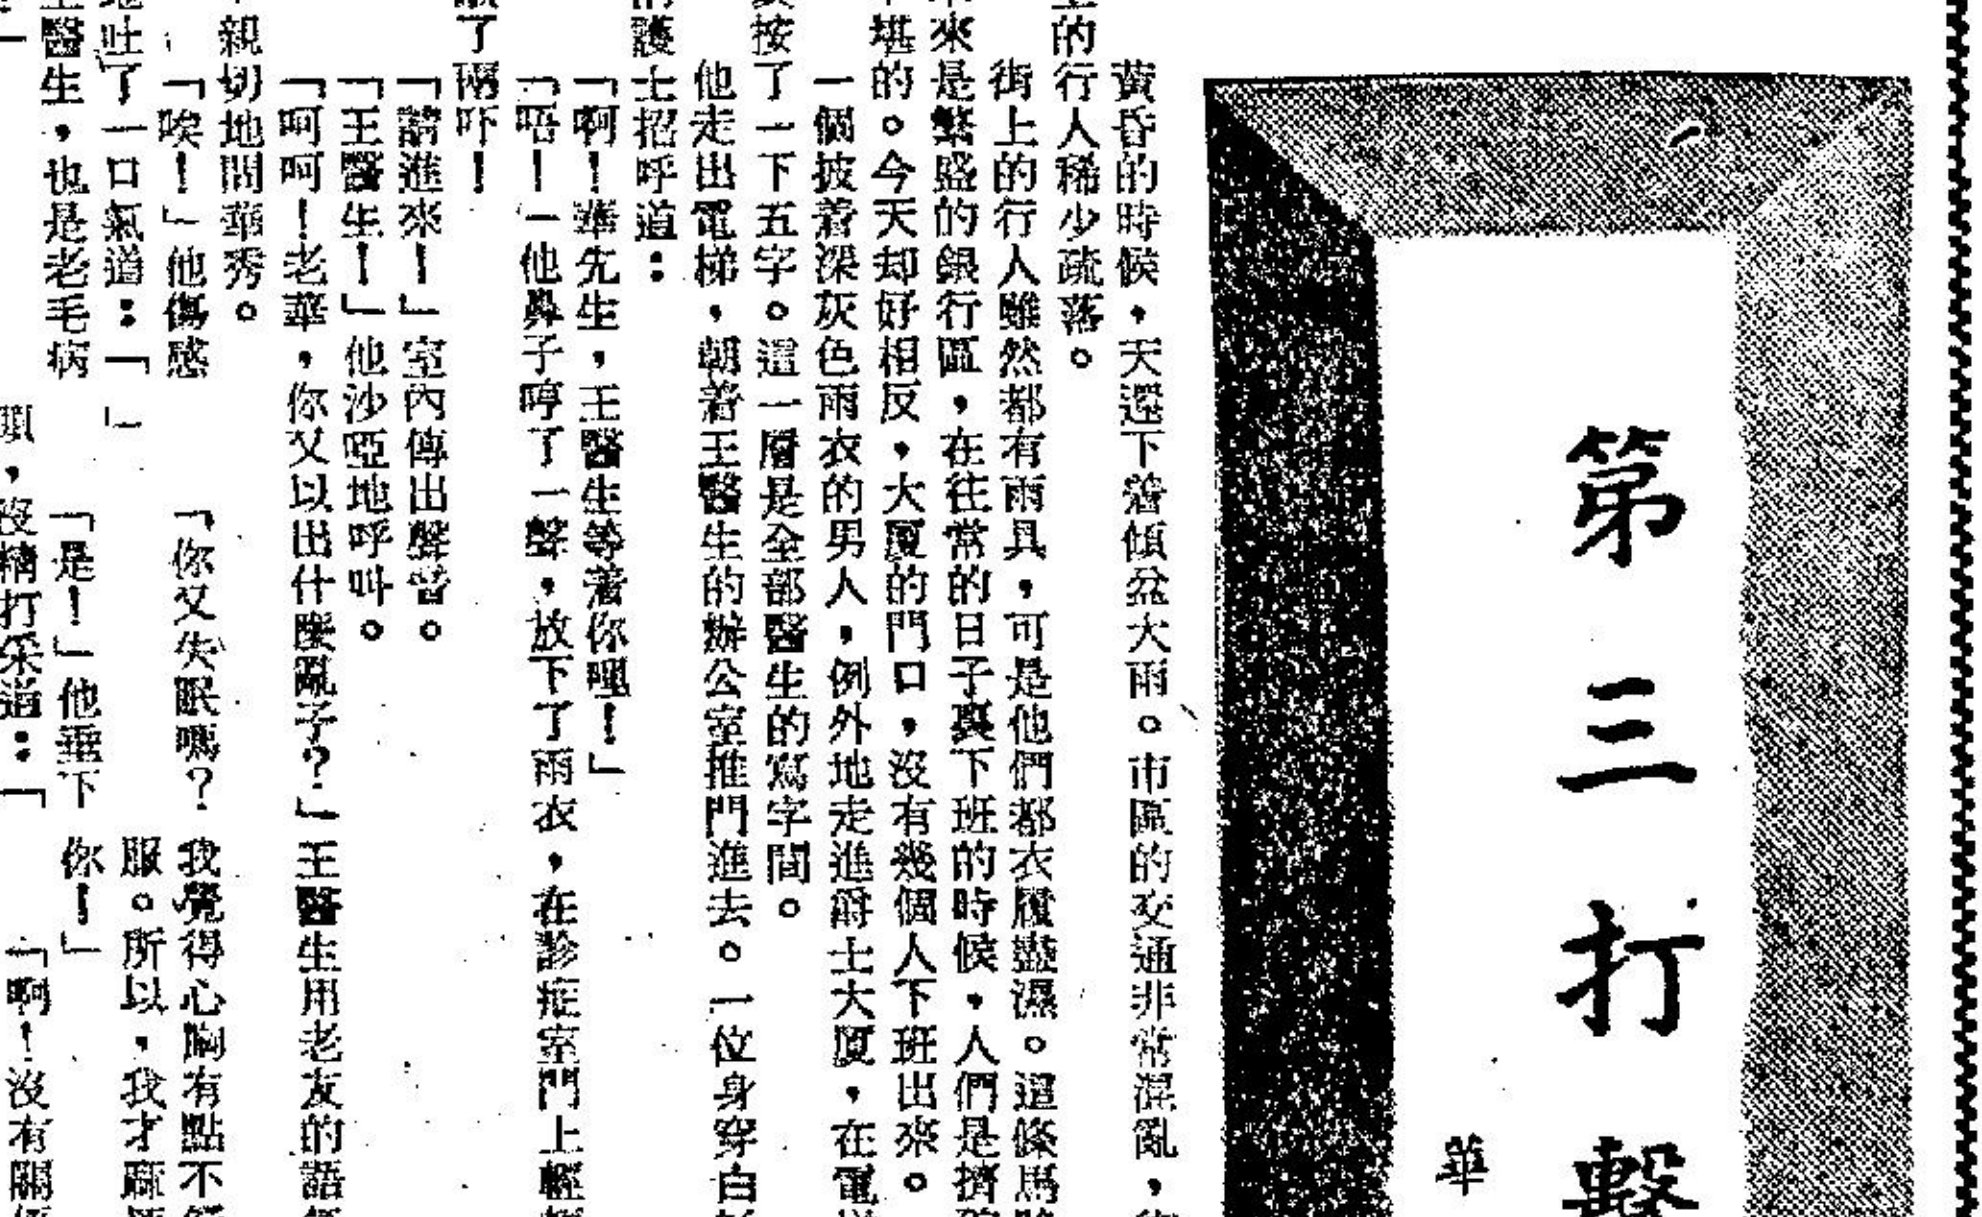 第三打擊
華
黃昏的時候，天還下着傾盆大雨。市區的交通非常混亂，
的行人稀少疏落。
街上的行人雖然都有雨具，可是他們都衣履盡濕。這條馬
來是繁盛的銀行區，在往常的日子裏下班的時候，人們是擠
堪的。今天却好相反，大厦的門口，沒有幾個人下班出來。
一個披着深灰色雨衣的男人，例外地走進爵士大厦，在電
按了一下五字。這一層是全部醫生的寫字間。
他走出電梯，朝着王醫生的辦公室推門進去。一位身穿白
護士招呼道：
「啊！華先生，王醫生等着你哩！」
「唔！」他鼻子哼了一聲，放下了雨衣，在診症室門上輕
了兩吓！
「請進來！」室內傳出聲音。
「王醫生！」他沙啞地呼叫。
「呵呵！老華，你又以出什麼亂子？」王醫生用老友的語
親切地問華秀。
「唉！」他傷感
地吐了一口氣道：「
醫生，也是老毛病
」
「你又失眠嗎？
「是！」他垂下
，沒精打采道：「
我覺得心胸有點不
服。所以，我才麻
你！」
「啊！沒有關